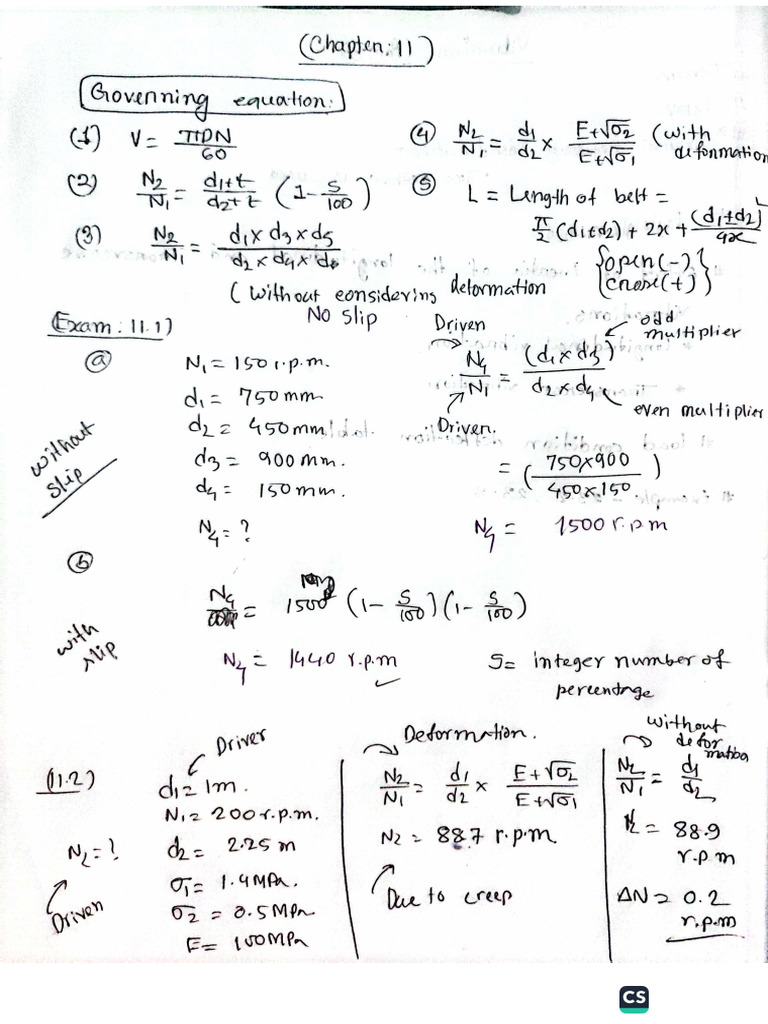 (Chapter: 11)
Governing equation:
(1) V = πDN/60
(2) N2/N1 = (d1+t)/(d2+t) (1 - S/100)
(3) N2/N1 = (d1 x d3 x d5)/(d2 x d4 x d6)
(without considering deformation
No slip
(4) N2/N1 = d1/d2 x (E+√σ2)/(E+√σ1) (with deformation
(5) L = Length of belt =
π/2 (d1±d2) + 2x + (d1±d2)²/4x
{open (-)
cross (+)}
(Exam: 11.1)
(a)
without slip
N1 = 150 r.p.m.
d1 = 750 mm
d2 = 450 mm
d3 = 900 mm.
d4 = 150 mm.
N4 = ?
Driven
N4/N1 = (d1 x d3)/(d2 x d4)
odd multiplier
even multiplier
Driven.
= (750x900/450x150)
N4 = 1500 r.p.m
(b)
with slip
N4 = 1500 (1 - S/100)(1 - S/100)
N4 = 1440 r.p.m
S = integer number of
percentage
(11.2)
Driver
d1 = 1m.
N1 = 200 r.p.m.
N2 = ?
Driven
d2 = 2.25 m
σ1 = 1.4 MPa.
σ2 = 0.5 MPa
E = 100 MPa
Deformation.
N2/N1 = d1/d2 x (E+√σ2)/(E+√σ1)
N2 = 88.7 r.p.m.
Due to creep
without deformation
N2/N1 = d1/d2
= 88.9
r.p.m
ΔN = 0.2
r.p.m
CS